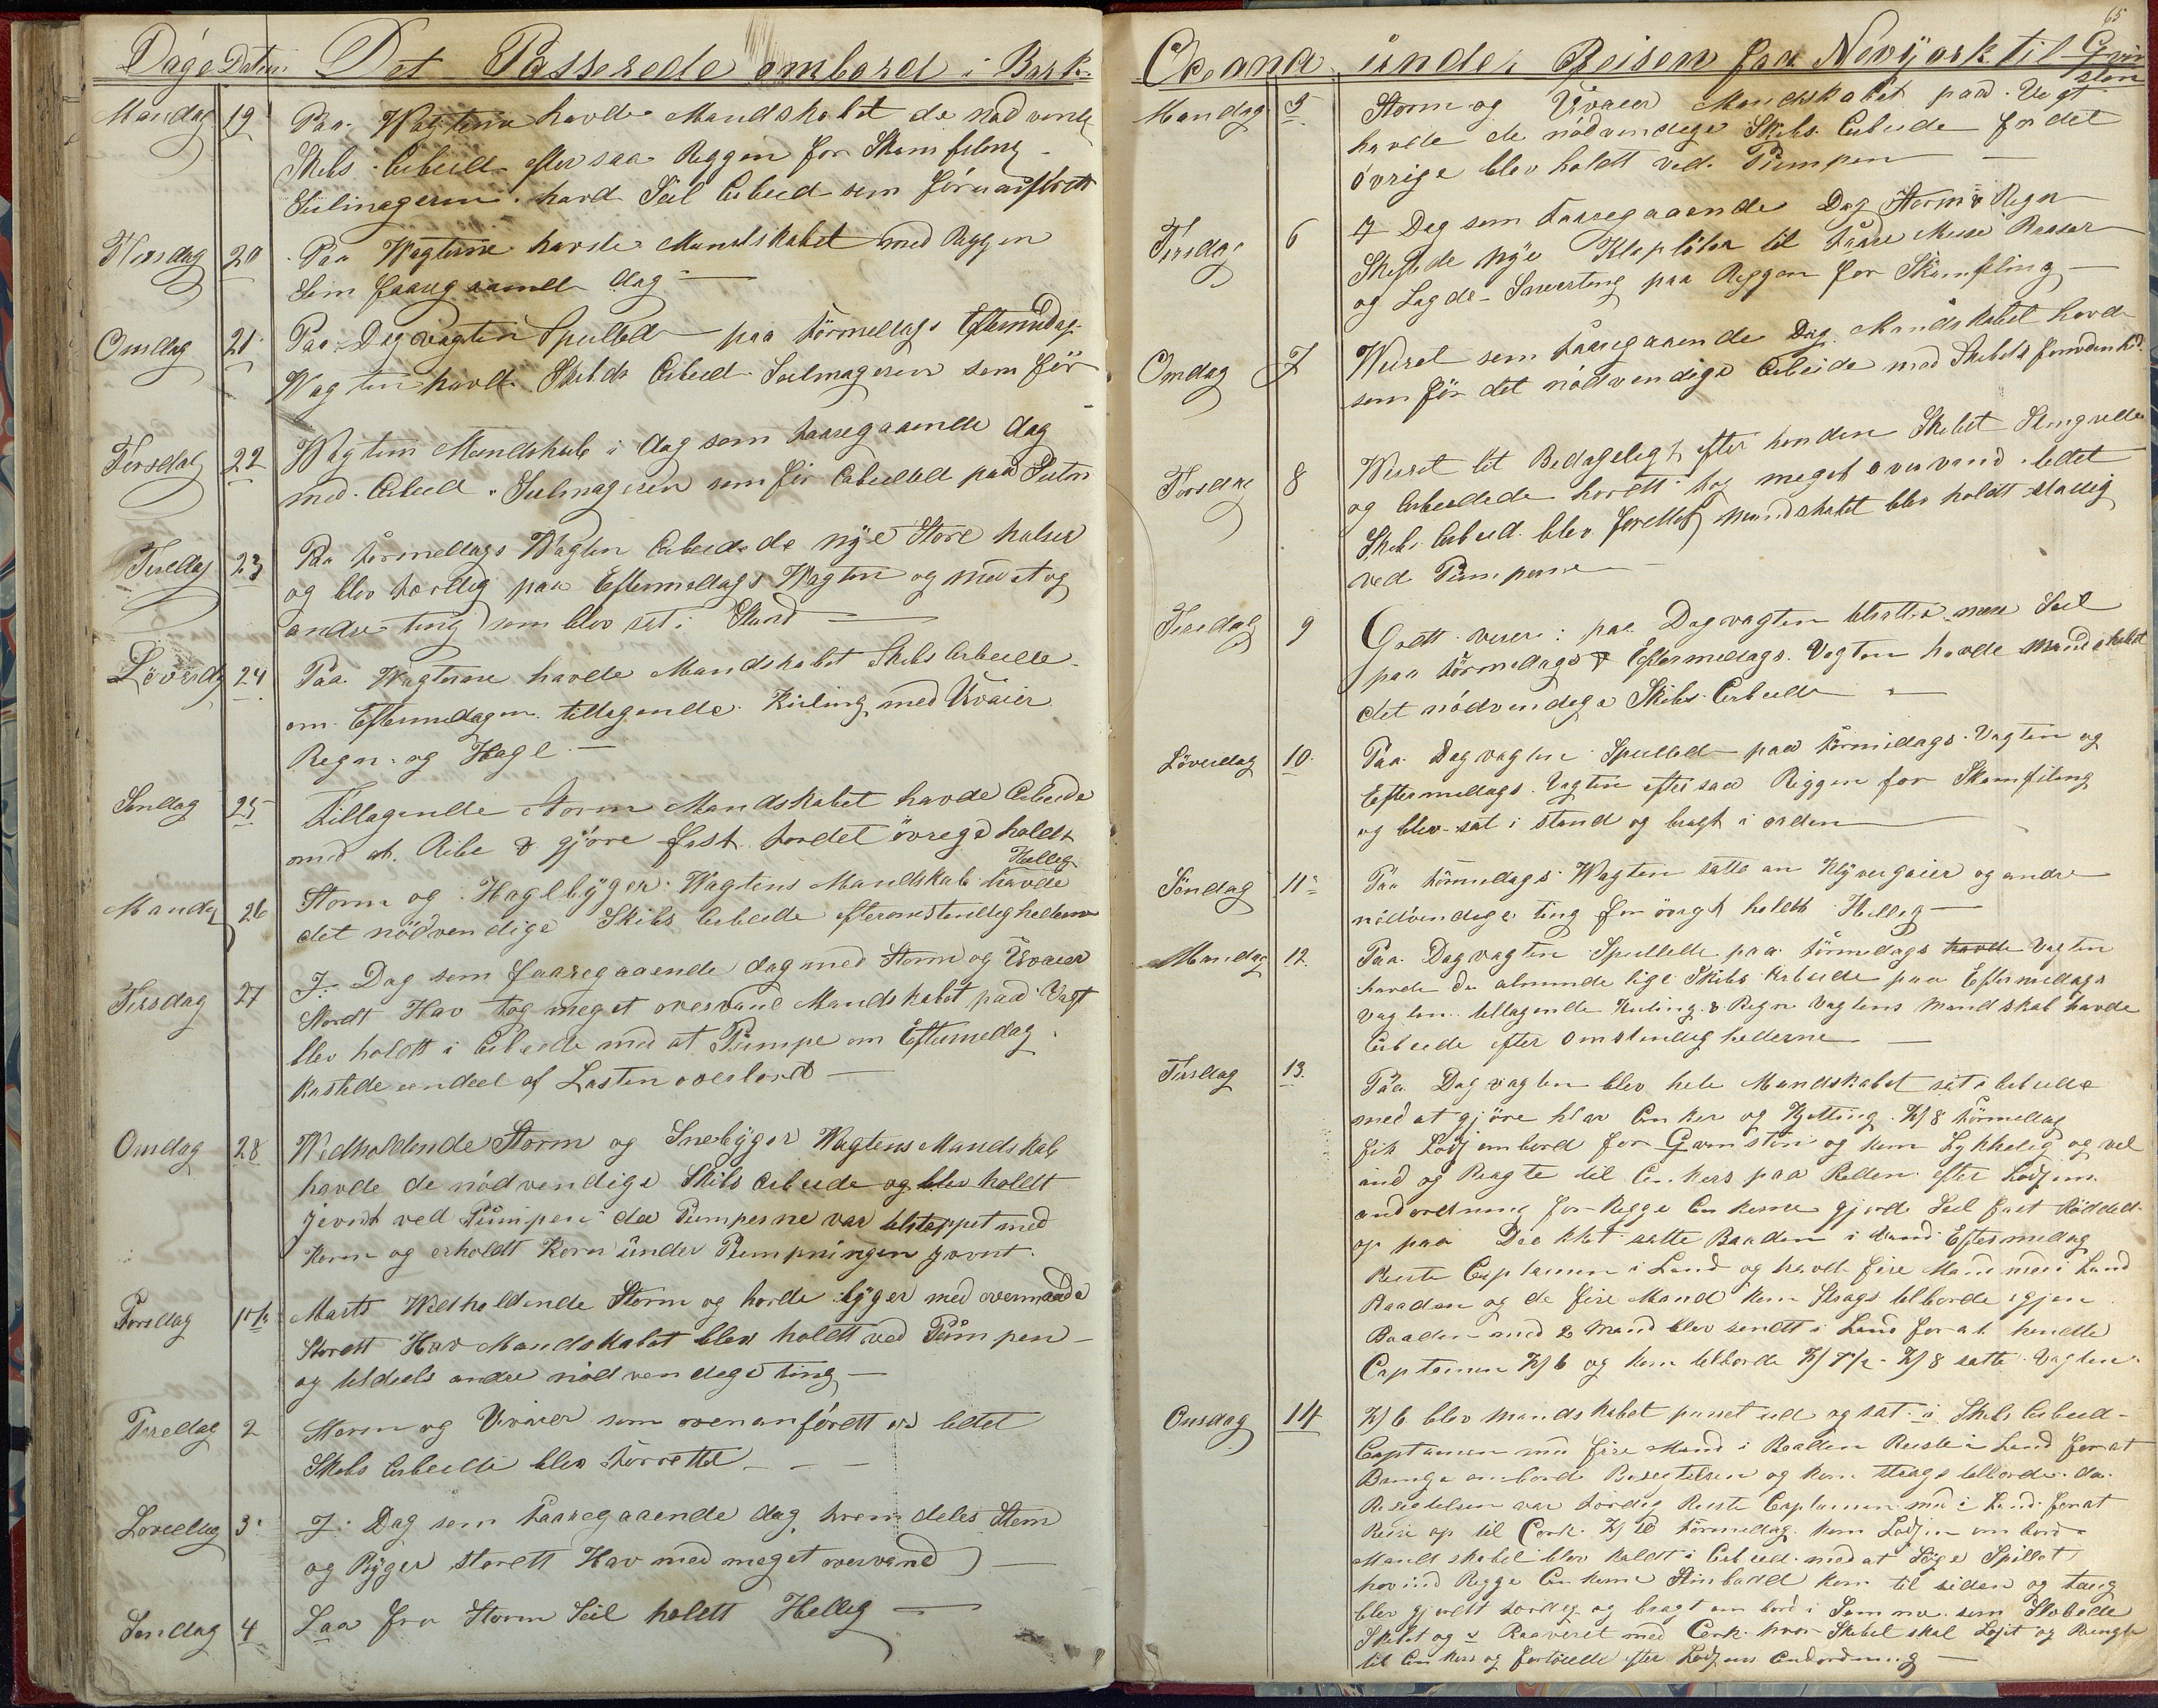 Dage Datum Det Passerede ombord i Bark
Mandag 19 Paa Wagterne havde Mandskabet de nødvende
Skibs Arbeid eftersaa Reggen for Skamfiling
Seilmageren havd Seil Arbeid som før
Tirsdag 20 Paa Wagterne havde Mandskabet med Reggen
Som faaregaaende dag
Onsdag 21 Paa Dagvagten Spulled paa førmedags Eftermedag
Wagten havde Skibets Arbeid Seilmageren som før
Torsdag 22 Wagtens Mandskab i dag som faaregaaende dag
med Arbeid Seilmageren som før Arbeidet paa Seilen
Fredag 23 Paa førmedags Wagten Arbeidede nye Store halser
og blev færdig paa Eftermedags Wagten og med at og
andre ting som blev sat i Stand
Löverdag 24 Paa Wagterne havde Mandskabet Skibs Arbeide
om Eftermedagen tiltagende Kuling med Uvaier
Regn og Hagl
Søndag 25 Tiltagende Storm Mandskabet havde Arbeide
med at Rebe & gjöre fast fordet övrege holdt
Helleg
Mandag 26 Storm og Haglbyger Wagtens Mandskab havde
det nödvendige Skibs Arbeide efter omstendeghederne
Tirsdag 27 I Dag som faaregaaende dag med Storm og Uvaier
Stordt Hav tog meget overvand Mandskabet paa Vagt
blev holdt i Arbeide med at Pumpe om Eftermedag
kastede eendeel af Lasten overbord
Onsdag 28 Wedholdende Storm og Snebyger Wagtens Mandskab
havde de nödvendige Skibs Arbeide og blev holdt
jevnt ved Pumpen da Pumperne var tilstoppet med
Korn og erholdt Korn under Pumpningen jevnt
Torsdag 1ste Marts Wedholdende Storm og horde byger med overmaade
Stordt Hav Mandskabet blev holdt ved Pumpen
og tildeels andre nödvendege ting
Fredag 2 Storm og Uvaier som ovenanfördt er letet
Skibs Arbeide blev forrettet
Loverdag 3 I Dag som Faaregaaende dag fremdeles Storm
og Byger stordt Hav med meget overvand
Søndag 4 Laa for Storm Seil holdt Helleg
65
Oceana under Reisen fra Newyork til Qvin
ston
Mandag 5 Storm og Uvaier Mandskabet paa Vagt
havde de nödvendege Skibs Arbeide for det
övrige blev holdt ved Pumpen
Tirsdag 6 I Dag som faaregaaende Dag Storm & Regn
Skiftede nye Klaplöber til
og Lagde Surreting paa Reggen for Skamfeling
Onsdag 7 Weiret som faaregaaende Dag Mandskabet havde
som för det nödvendige Arbeide med Skibets
Torsdag 8 Weiret let Bedageligt efter henden Skibet Slingrede
og Arbeidede hordt tog meget overvand letet
Skibs Arbeid blev forettet Mandskabet blev holdt stadig
ved Pumperne
Fredag 9 Godt veier: paa Dagvagten tilsatte mere Seil
paa förmedags & Eftermedags Vagten havde Mandskabet
det nödvendege Skibs Arbeide
Löverdag 10 Paa Dagvagten Spulled paa förmedags Vagten og
Eftermedags Vagten eftersaa Riggen for Skamfiling
og blev sat i stand og bragt i orden
Söndag 11 Paa förmedags Wagten satte an Klyvergaier og andre
nödvendege ting for övregt holdt Helleg
Mandag 12 Paa Dagvagten Spullede paa förmedags havde Vagten
havde de almindelige Skibs Arbeide paa Eftermedags
Vagten tiltagende Kuling & Regn Vagtens Mandskab havde
Arbeide efter omstendeghederne
Tirsdag 13 Paa Dagvagten blev hele Mandskabet sat i Arbeide
med at gjöre klar Ankere og Kjetting. Kl 8 förmedag
fik Lods ombord for Qvinston og kom Lykkelig og vel
ind og Bragte til Ankers paa Reden efter Lodsens
andordning for begge Ankerne gjorde Seil fast Röddede
op paa Dækket satte Baaden i Vand Eftermedag
Reiste Captainen i Land og havde fire Mand med i Land
Baaden og de fire Mand kom Strags tilborde egjen
Baaden med 2 Mand blev sendt i Land for at hendte
Captainen Kl 6 og kom tilborde Kl 7½ Kl 8 satte Vagten
Onsdag 14 Kl 6 blev Mandskabet purret ud og sat i Skibs Arbeid
Captainen med fire Mand i Baaden Reiste i Land for at
Bringe ombord Besegtelsen og kom straags tilborde da
Besegtelsen var færdig Reiste Captainen med i Land for at
Reise op til Cork Kl 10 förmedag kom Lodsen ombord
Mandskabet blev holdt i Arbeid med at Spillet
hev ind Begge Ankerne Stimbaad kom til siden og taug
blev gjordt færdeg og bragt ombord i Samme som Slæbede
Skibet og Cork hvor Skibet skal Losset og Bragte
til Ankers og fortöiede efter Lodsens Andordning